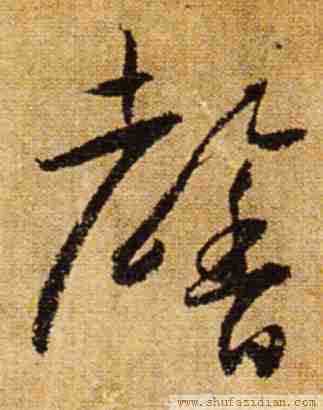 馨
www.shufazidian.com